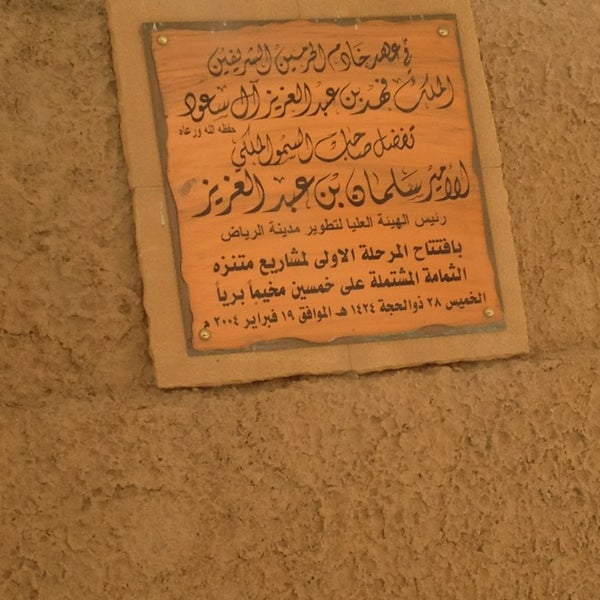 في عهد خادم الحرمين الشريفين
الملك فهد بن عبد العزيز آل سعود
حفظه الله ورعاه
تفضل صاحب السمو الملكي
الأمير سلمان بن عبد العزيز
رئيس الهيئة العليا لتطوير مدينة الرياض
بافتتاح المرحلة الاولى لمشاريع متنزه
الثمامة المشتملة على خمسين مخيماً برياً
الخميس ٢٨ ذوالحجة ١٤٢٤ هـ الموافق ١٩ فبراير ٢٠٠٤ م